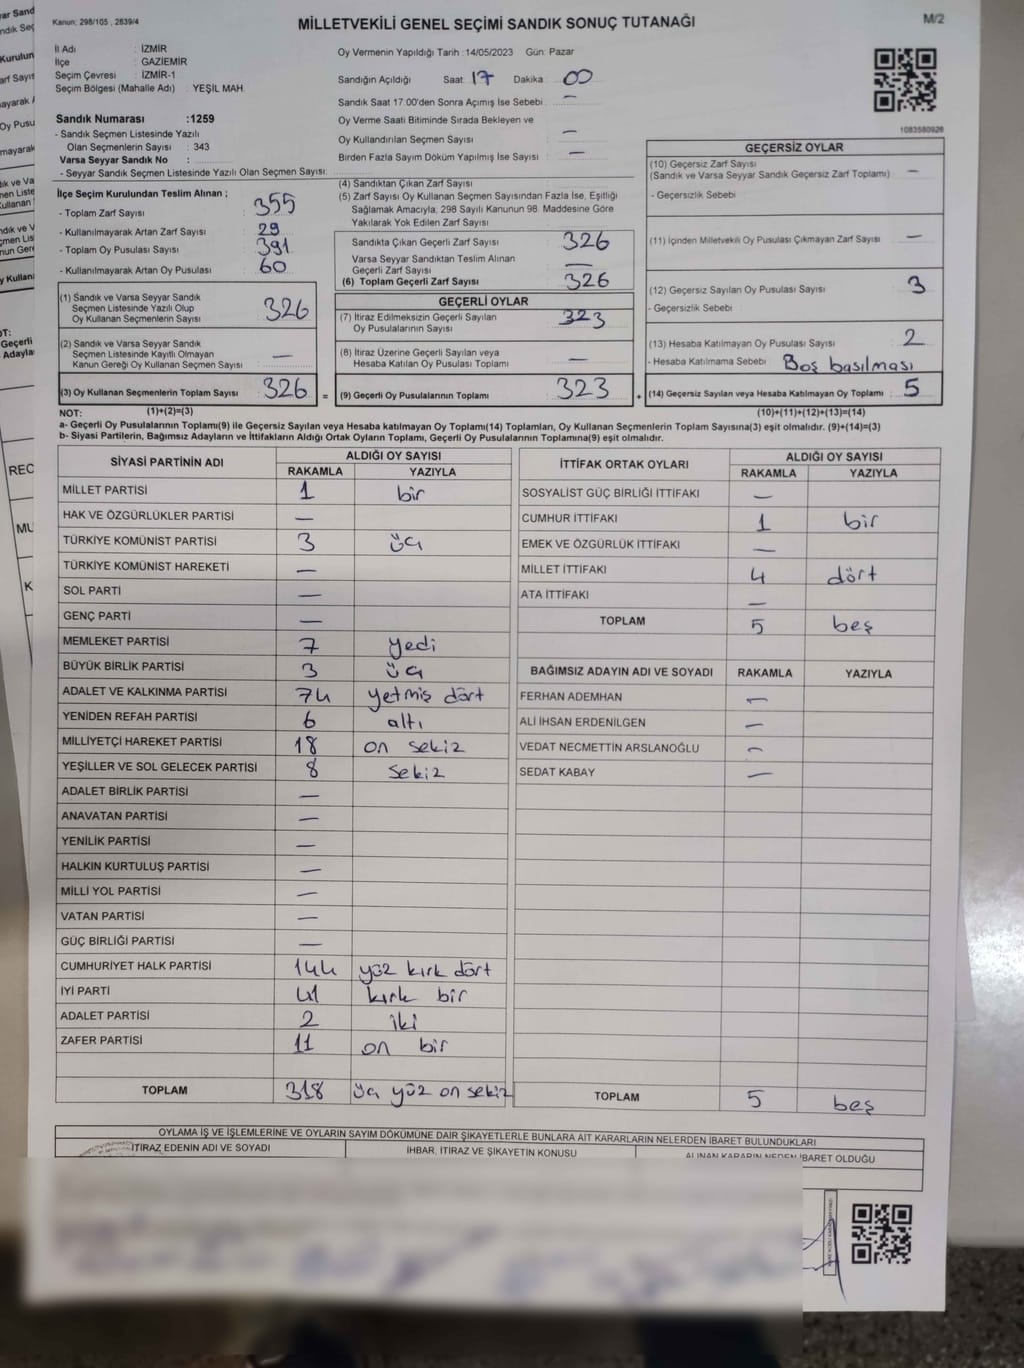 Kanun: 298/105 , 2839/4
MİLLETVEKİLİ GENEL SEÇİMİ SANDIK SONUÇ TUTANAĞI
M/2
İl Adı : İZMİR
İlçe : GAZİEMİR
Seçim Çevresi : İZMİR-1
Seçim Bölgesi (Mahalle Adı) : YEŞİL MAH.
Oy Vermenin Yapıldığı Tarih :14/05/2023 Gün: Pazar
Sandığın Açıldığı Saat: 17 Dakika: 00
Sandık Saat 17.00'den Sonra Açımış İse Sebebi : —
Oy Verme Saati Bitiminde Sırada Bekleyen ve
Oy Kullandırılan Seçmen Sayısı : —
Birden Fazla Sayım Döküm Yapılmış İse Sayısı : —
1083580926
Sandık Numarası :1259
- Sandık Seçmen Listesinde Yazılı
Olan Seçmenlerin Sayısı : 343
Varsa Seyyar Sandık No :
- Seyyar Sandık Seçmen Listesinde Yazılı Olan Seçmen Sayısı:
İlçe Seçim Kurulundan Teslim Alınan ;
- Toplam Zarf Sayısı : 355
- Kullanılmayarak Artan Zarf Sayısı : 29
- Toplam Oy Pusulası Sayısı : 391
- Kullanılmayarak Artan Oy Pusulası : 60
(1) Sandık ve Varsa Seyyar Sandık
Seçmen Listesinde Yazılı Olup
Oy Kullanan Seçmenlerin Sayısı : 326
(2) Sandık ve Varsa Seyyar Sandık
Seçmen Listesinde Kayıtlı Olmayan
Kanun Gereği Oy Kullanan Seçmen Sayısı : —
(3) Oy Kullanan Seçmenlerin Toplam Sayısı : 326 =
(4) Sandıktan Çıkan Zarf Sayısı :
(5) Zarf Sayısı Oy Kullanan Seçmen Sayısından Fazla İse, Eşitliği
Sağlamak Amacıyla, 298 Sayılı Kanunun 98. Maddesine Göre
Yakılarak Yok Edilen Zarf Sayısı :
Sandıkta Çıkan Geçerli Zarf Sayısı : 326
Varsa Seyyar Sandıktan Teslim Alınan
Geçerli Zarf Sayısı : —
(6) Toplam Geçerli Zarf Sayısı : 326
GEÇERLİ OYLAR
(7) İtiraz Edilmeksizin Geçerli Sayılan
Oy Pusulalarının Sayısı : 323
(8) İtiraz Üzerine Geçerli Sayılan veya
Hesaba Katılan Oy Pusulası Toplamı : —
(9) Geçerli Oy Pusulalarının Toplamı : 323 +
GEÇERSİZ OYLAR
(10) Geçersiz Zarf Sayısı : —
(Sandık ve Varsa Seyyar Sandık Geçersiz Zarf Toplamı)
- Geçersizlik Sebebi :
(11) İçinden Milletvekili Oy Pusulası Çıkmayan Zarf Sayısı : —
(12) Geçersiz Sayılan Oy Pusulası Sayısı : 3
- Geçersizlik Sebebi :
(13) Hesaba Katılmayan Oy Pusulası Sayısı : 2
- Hesaba Katılmama Sebebi : Boş basılması
(14) Geçersiz Sayılan veya Hesaba Katılmayan Oy Toplamı : 5
NOT: (1)+(2)=(3) (10)+(11)+(12)+(13)=(14)
a- Geçerli Oy Pusulalarının Toplamı(9) ile Geçersiz Sayılan veya Hesaba katılmayan Oy Toplamı(14) Toplamları, Oy Kullanan Seçmenlerin Toplam Sayısına(3) eşit olmalıdır. (9)+(14)=(3)
b- Siyasi Partilerin, Bağımsız Adayların ve İttifakların Aldığı Ortak Oyların Toplamı, Geçerli Oy Pusulalarının Toplamına(9) eşit olmalıdır.
SİYASİ PARTİNİN ADI ALDIĞI OY SAYISI
RAKAMLA YAZIYLA
MİLLET PARTİSİ 1 bir
HAK VE ÖZGÜRLÜKLER PARTİSİ —
TÜRKİYE KOMÜNİST PARTİSİ 3 üç
TÜRKİYE KOMÜNİST HAREKETİ —
SOL PARTİ —
GENÇ PARTİ —
MEMLEKET PARTİSİ 7 yedi
BÜYÜK BİRLİK PARTİSİ 3 üç
ADALET VE KALKINMA PARTİSİ 74 yetmiş dört
YENİDEN REFAH PARTİSİ 6 altı
MİLLİYETÇİ HAREKET PARTİSİ 18 on sekiz
YEŞİLLER VE SOL GELECEK PARTİSİ 8 sekiz
ADALET BİRLİK PARTİSİ —
ANAVATAN PARTİSİ —
YENİLİK PARTİSİ —
HALKIN KURTULUŞ PARTİSİ —
MİLLİ YOL PARTİSİ —
VATAN PARTİSİ —
GÜÇ BİRLİĞİ PARTİSİ —
CUMHURİYET HALK PARTİSİ 144 yüz kırk dört
İYİ PARTİ 41 kırk bir
ADALET PARTİSİ 2 iki
ZAFER PARTİSİ 11 on bir
TOPLAM 318 üç yüz on sekiz
İTTİFAK ORTAK OYLARI ALDIĞI OY SAYISI
RAKAMLA YAZIYLA
SOSYALİST GÜÇ BİRLİĞİ İTTİFAKI —
CUMHUR İTTİFAKI 1 bir
EMEK VE ÖZGÜRLÜK İTTİFAKI —
MİLLET İTTİFAKI 4 dört
ATA İTTİFAKI —
TOPLAM 5 beş
BAĞIMSIZ ADAYIN ADI VE SOYADI RAKAMLA YAZIYLA
FERHAN ADEMHAN —
ALİ İHSAN ERDENİLGEN —
VEDAT NECMETTİN ARSLANOĞLU —
SEDAT KABAY —
TOPLAM 5 beş
OYLAMA İŞ VE İŞLEMLERİNE VE OYLARIN SAYIM DÖKÜMÜNE DAİR ŞİKAYETLERLE BUNLARA AİT KARARLARIN NELERDEN İBARET BULUNDUKLARI
İTİRAZ EDENİN ADI VE SOYADI İHBAR, İTİRAZ VE ŞİKAYETİN KONUSU ALINAN KARARIN NEDEN İBARET OLDUĞU